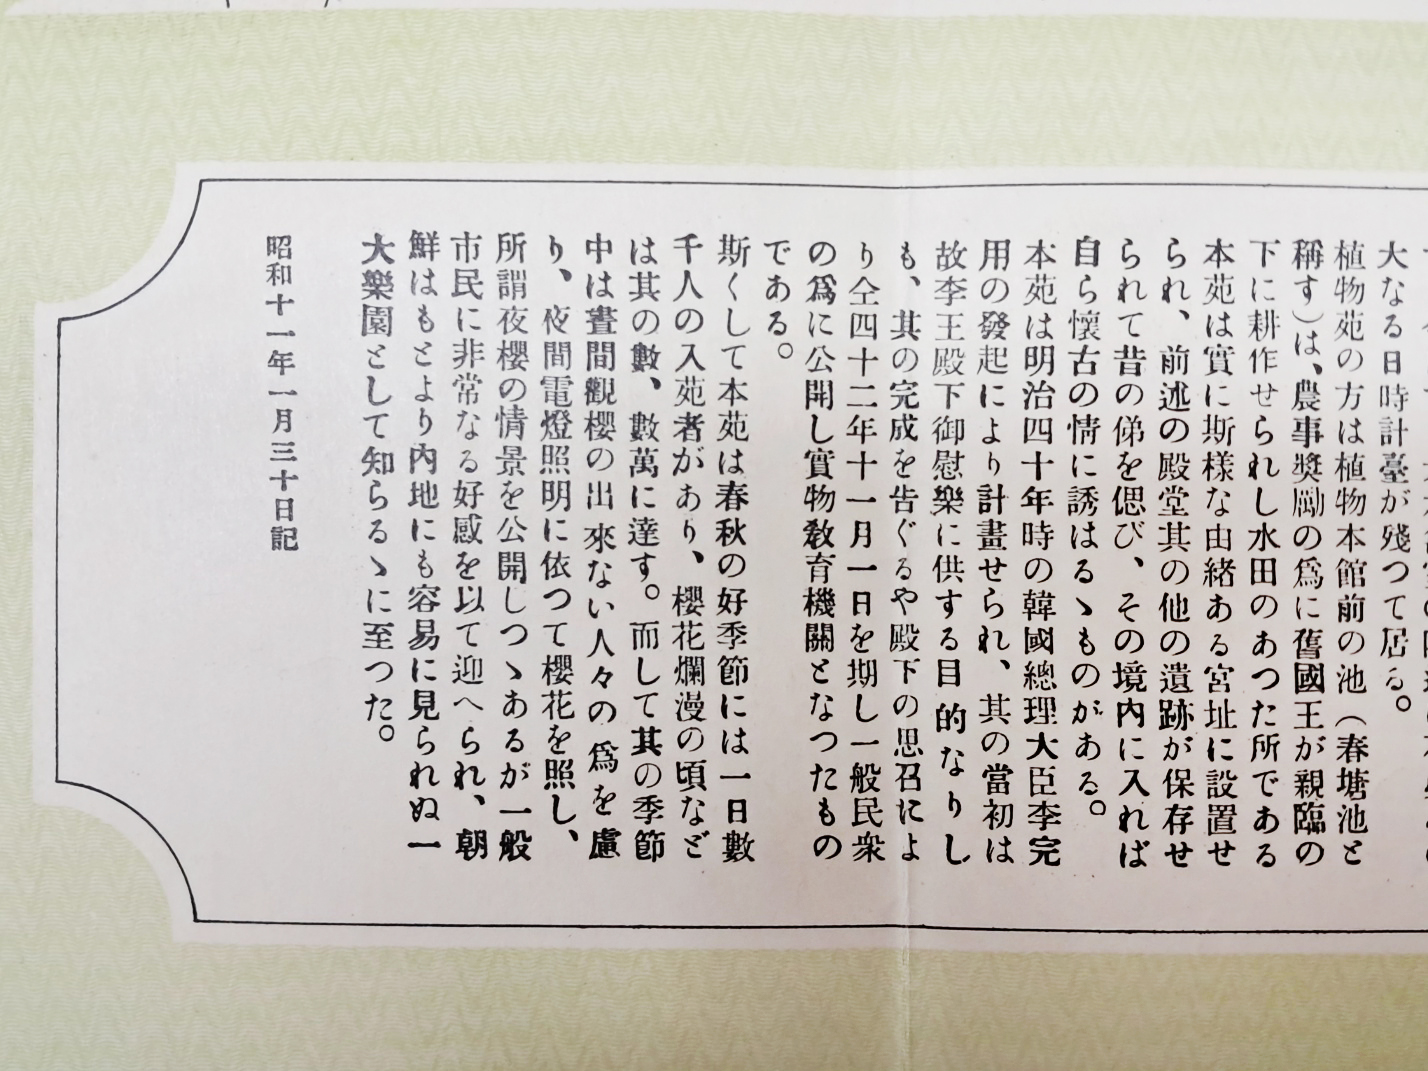 大なる日時計臺が殘つて居る。
植物苑の方は植物本館前の池（春塘池と
稱す）は、農事奬勵の爲に舊國王が親臨の
下に耕作せられし水田のあつた所である
本苑は實に斯樣な由緒ある宮址に設置せ
られ、前述の殿堂其の他の遺跡が保存せ
られて昔の俤を偲び、その境內に入れば
自ら懷古の情に誘はるゝものがある。
本苑は明治四十年時の韓國總理大臣李完
用の發起により計畫せられ、其の當初は
故李王殿下御慰樂に供する目的なりし
も、其の完成を告ぐるや殿下の思召によ
り仝四十二年十一月一日を期し一般民衆
の爲に公開し實物敎育機關となつたもの
である。
斯くして本苑は春秋の好季節には一日數
千人の入苑者があり、櫻花爛漫の頃など
は其の數、數萬に達す。而して其の季節
中は晝間觀櫻の出來ない人々の爲を慮
り、夜間電燈照明に依つて櫻花を照し、
所謂夜櫻の情景を公開しつゝあるが一般
市民に非常なる好感を以て迎へられ、朝
鮮はもとより內地にも容易に見られぬ一
大樂園として知らるゝに至つた。
昭和十一年一月三十日記